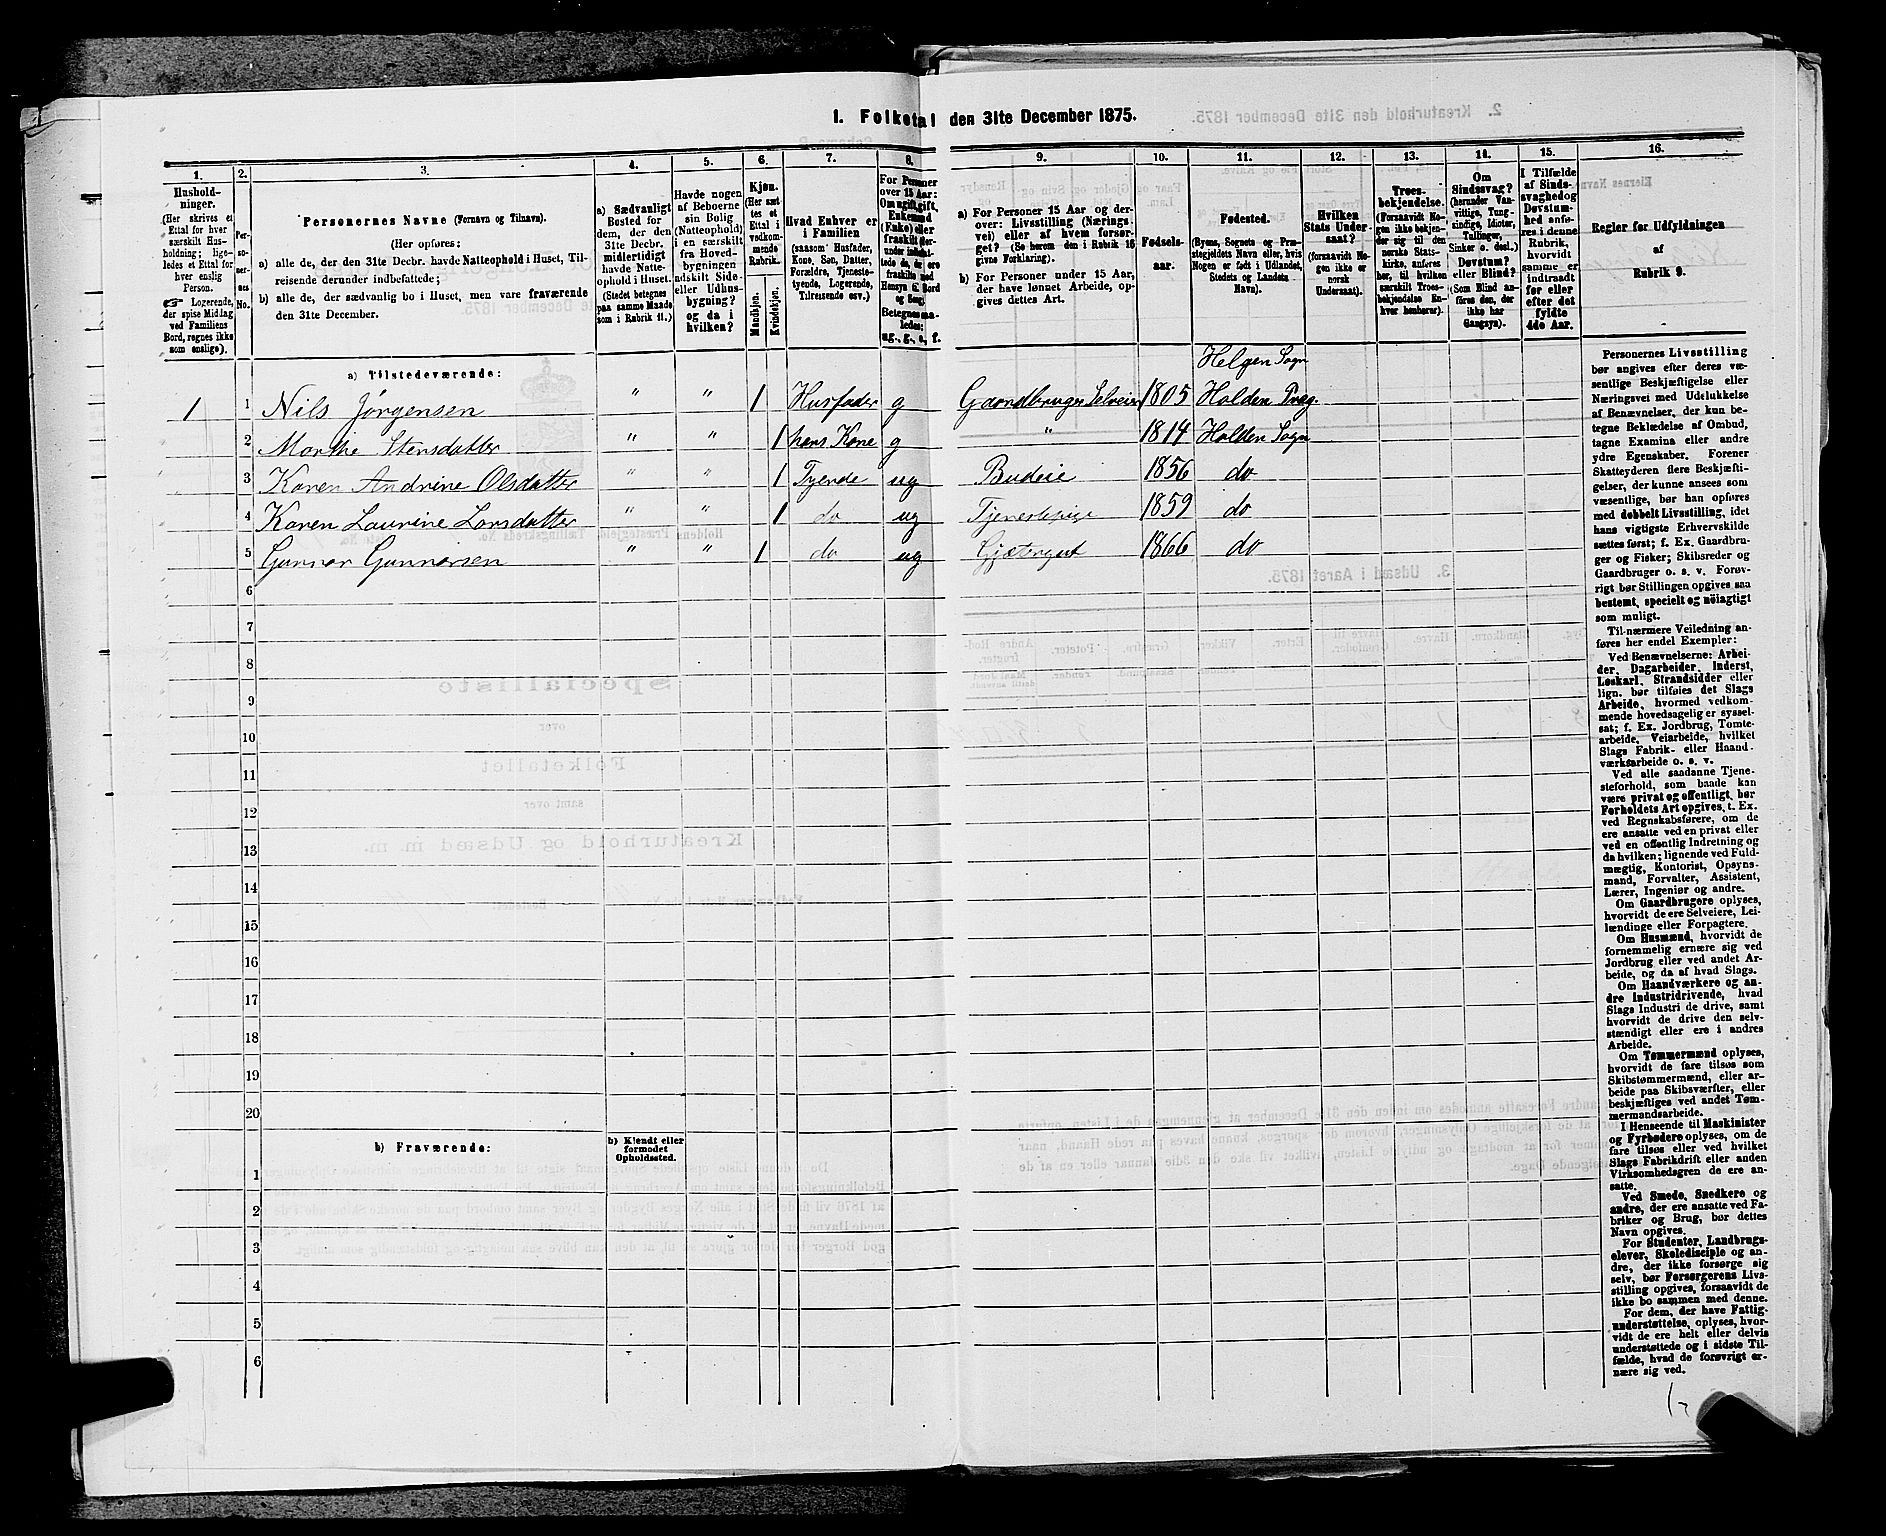 1. Folketal den 31te December 1875.
1. 2. 3. 4. 5. 6. 7. 8. 9. 10. 11. 12. 13. 14. 15. 16.
Husholdninger.
(Her skrives et
Ettal for hver
særskilt Husholdning;
ligeledes et Ettal for
hver enslig
Person.
Logerende,
der spise Middag
ved Familiens
Bord, regnes ikke
som enslige).
Personernes No.
Personernes Navne (Fornavn og Tilnavn).
(Her opføres:
a) alle de, der den 31te Decbr. havde Natteophold i Huset, Tilreisende
derunder indbefattede;
b) alle de, der sædvanlig bo i Huset, men vare fraværende
den 31te December.
a) Sædvanligt
Bosted for
dem, der den
31te Decbr.
midlertidigt
havde Natteophold
i Huset.
(Stedet betegnes
paa samme Maade
som i Rubrik 11.)
Havde nogen
af Beboerne
sin Bolig
(Natteophold)
i en særskilt
fra Hovedbygningen
adskilt Side-
eller Udhusbygning?
og da i
hvilken?
Kjøn.
(Her sættes
et
Ettal i
vedkommende
Rubrik.
Mandkjøn.
Kvindekjøn.
Hvad Enhver er
i Familien
(saasom Husfader,
Kone, Søn, Datter,
Forældre, Tjenestetyende,
Logerende,
Tilreisende osv.)
For Personer
over 15 Aar:
Om ugift, gift,
Enkemand
(Enke) eller
fraskilt
Betegnes saaledes:
ug., g., e., f.
a) For Personer 15 Aar og derover:
Livsstilling (Næringsvei)
eller af hvem forsørget?
(Se herom den i Rubrik 16
givne Forklaring).
b) For Personer under 15 Aar,
der have lønnet Arbeide, opgives
dettes Art.
Fødselsaar.
Fødested.
(Byens, Sognets og Præstegjeldets
Navn eller, hvis
Nogen er født i Udlandet,
Stedets og Landets
Navn).
Hvilken
Stats Undersaat?
(forsaavidt Nogen
ikke er
norsk
Undersaat).
Troesbekjendelse.
(Forsaavidt Nogen
ikke bekjender
sig til den
norske Statskirke,
anføres
her, til hvilken
særskilt Troesbekjendelse
Enhver
henhører).
Om
Sindssvag?
(herunder Vanvittige,
Tungsindige,
Idioter,
Tullinger,
Sinker o. desl.)
Døvstum?
eller Blind?
(Som Blind anføres
den, der
ikke har
Gangsyn).
I Tilfælde
af Sindssvaghed
og
Døvstumhed
anføres
i denne
Rubrik,
hvorvidt
samme er
indtraadt
før eller
efter det
fyldte
4de Aar.
Regler for Udfyldningen
af
Rubrik 9.
a) Tilstedeværende:
Helgen Sogn
1 1 Nils Jørgensen " " 1 Husfader g Gaardbruger Selveier 1805 Holden Præg.
2 Marthe Stensdatter " " 1 hans Kone g " 1814 Holden Sogn
3 Karen Andrine Olsdatter " " 1 Tyende ug Budeie 1856 do
4 Karen Laurine Larsdatter " " 1 do ug Tjenestepige 1859 do
5 Gunnar Gunnarsen " " 1 do ug Gjætergut 1866 do
6
7
8
9
10
11
12
13
14
15
16
17
18
19
20
b) Fraværende:
b) Kjendt eller
formodet
Opholdssted.
1
2
3
4
5
6
Personernes Livsstilling
bør angives efter deres væsentlige
Beskjæftigelse eller
Næringsvei med Udelukkelse
af Benævnelser, der kun betegne
Beklædelse af Ombud,
tagne Examina eller andre
ydre Egenskaber. Forener
Skatteyderen flere Beskjæftigelser,
der kunne ansees som
væsentlige, bør han opføres
med dobbelt Livsstilling, idet
hans vigtigste Erhvervskilde
sættes først; f. Ex. Gaardbruger
og Fisker; Skibsreder og
Gaardbruger o. s. v. Forøvrigt
bør Stillingen opgives saa
bestemt, specielt og nöiagtigt
som muligt.
Til nærmere Veiledning anføres
her endel Exempler:
Ved Benævnelserne: Arbeider,
Dagarbeider, Inderst,
Løskarl, Strandsidder eller
lign. bør tilføies det Slags
Arbeide, hvormed vedkommende
hovedsagelig er sysselsat;
f. Ex. Jordbrug, Tomtearbeide,
Veiarbeide, hvilket
Slags Fabrik- eller Haandværksarbeide
o. s. v.
Ved alle saadanne Tjenesteforhold,
som baade kan
være privat og offentligt, bør
Forholdets Art opgives, t. Ex.
ved Regnskabsførere, om de
ere ansatte ved en privat eller
ved en offentlig Indretning og
da hvilken; lignende ved Fuldmægtig,
Kontorist, Opsynsmand,
Forvalter, Assistent,
Lærer, Ingeniør og andre.
Om Gaardbrugere oplyses,
hvorvidt de ere Selveiere, Leilændinge
eller Forpagtere.
Om Husmænd, hvorvidt de
fornemmelig ernære sig ved
Jordbrug eller ved andet Arbeide,
og da af hvad Slags.
Om Haandværkere og andre
Industridrivende, hvad
Slags Industri de drive, samt
hvorvidt de drive den selvstændigt
eller ere i andres
Arbeide.
Om Tømmermænd oplyses,
hvorvidt de fare tilsøs som
Skibstømmermænd, eller arbeide
paa Skibsværfter, eller
beskjæftiges ved andet Tømmermandsarbeide.
I Henseende til Maskinister
og Fyrbødere oplyses, om de
fare tilsøs eller ved hvilket
Slags Fabrikdrift eller anden
Virksomhedsgren de ere ansatte.
Ved Smede, Snedkere og
andre, der ere ansatte ved Fabriker
og Brug, bør dettes
Navn opgives.
For Studenter, Landbrugselever,
Skoledisciple og andre,
der ikke forsørge sig
selv, bør Forsørgerens Livsstilling
opgives, forsaavidt de
ikke bo sammen med denne.
For dem, der have Fattigunderstøttelse,
oplyses, hvorvidt
de ere helt eller delvis
understøttede og i sidste Tilfælde,
hvad de forøvrigt ernære
sig ved.